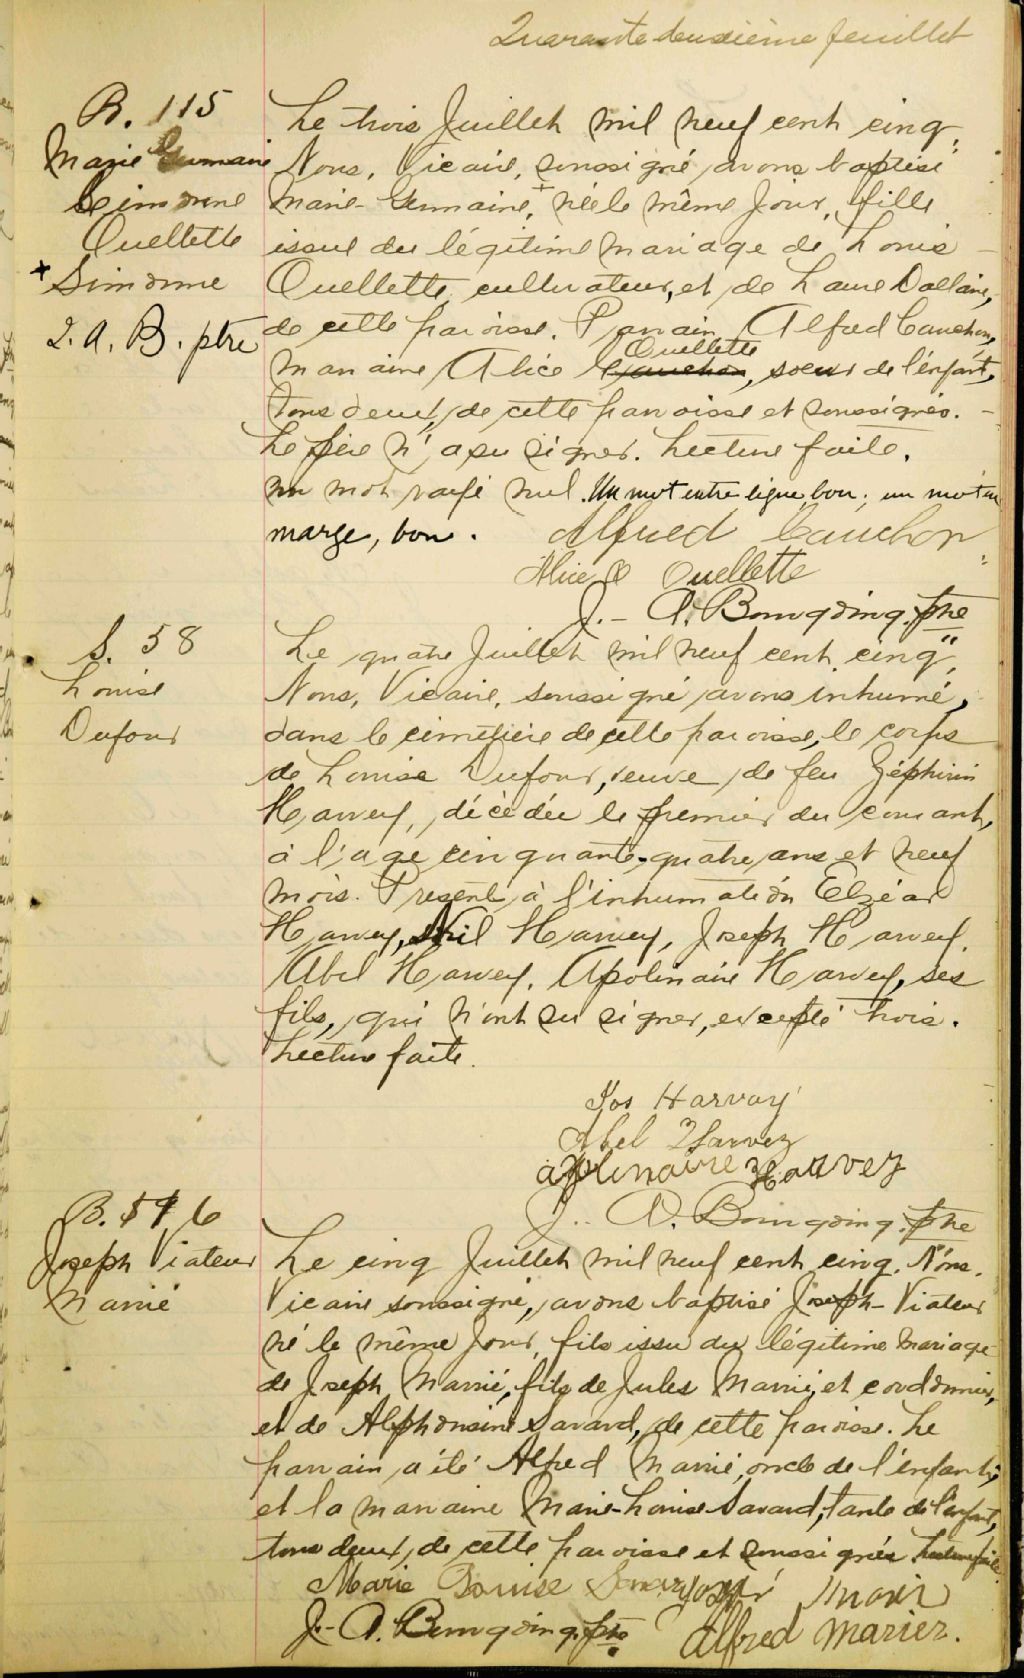 Quarante deuxième feuillet
B. 115
Marie Germaine
Simonne
Ouellette
+ Simonne
J. A. B. ptre
Le trois Juillet mil neuf cent cinq,
Nous, Vicaire, soussigné avons baptisé
Marie-Germaine,+ née le même jour, fille
issue du légitime mariage de Louis
Ouellette, cultivateur, et de Laure Dallaire,
de cette paroisse. Parrain, Alfred Cauchon,
Ouellette
marraine Alice Cauchon, soeur de l'enfant,
tous deux, de cette paroisse et soussignés.
Le père n'a su signer. Lecture faite.
un mot rayé nul. Un mot entre ligne, bon; un mot en
marge, bon.
Alfred Cauchon
Alice O Ouellette
J.-A. Bourgoing, ptre
S. 58
Louise
Dufour
Le quatre Juillet mil neuf cent cinq,
Nous, Vicaire, soussigné avons inhumé,
dans le cimetière de cette paroisse, le corps
de Louise Dufour, veuve de feu Zéphirin
Harvey, décèdée le premier du courant,
à l'age cinquante-quatre ans et neuf
mois. Present à l'inhumation Elzéar
Harvey, Nil Harvey, Joseph Harvey,
Abel Harvey, Apolinaire Harvey, ses
fils, qui n'ont su signer, excepté trois.
Lecture faite.
Jos Harvay
Abel Harvey
apolinaire Harvey
J.. A. Bourgoing, ptre
B. 116
Joseph Viateur
Marié
Le cinq Juillet mil neuf cent cinq, Nous,
Vicaire soussigné, avons baptisé Joseph-Viateur
né le même jour, fils issu du légitime mariage
de Joseph Marié, fils de Jules Marié, et cordonnier,
et de Alphonsine Savard, de cette paroisse. Le
parrain a été Alfred Marié, oncle de l'enfant,
et la marraine Marie-Louise Savard, tante de l'enfant,
tous deux, de cette paroisse et soussignés. Lecture faite.
Marie Louise Savard
J.-A. Bourgoing, ptre
Alfred Marier.